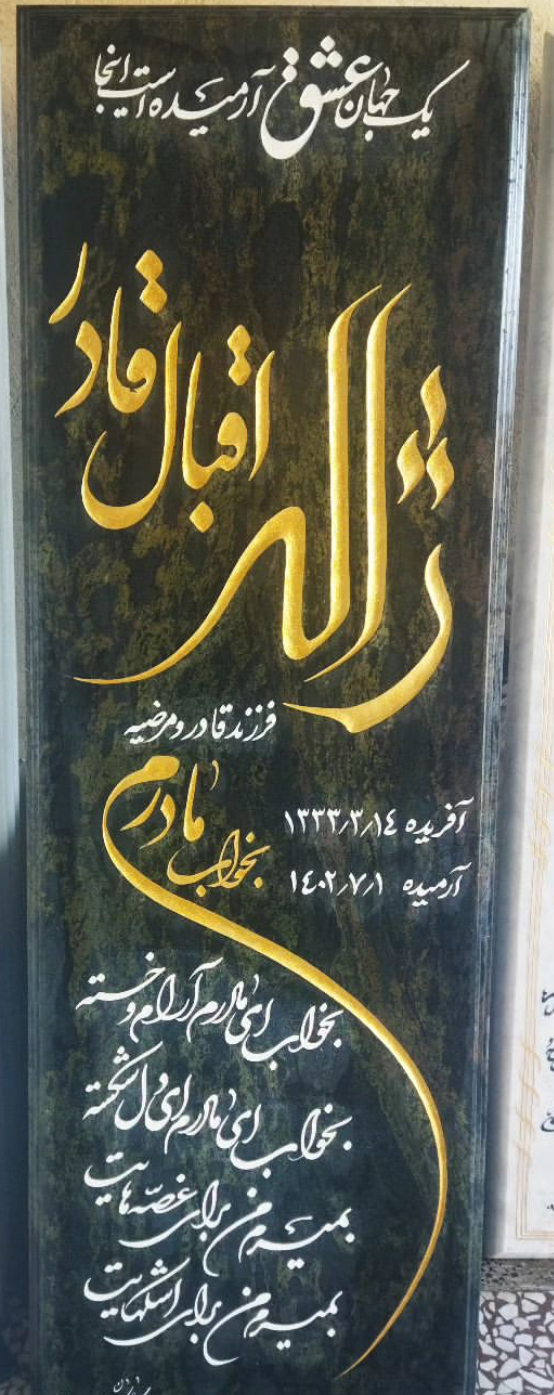 یک جهان عشق آرمیده است اینجا
ژاله اقبال قادر
فرزند قادر و مرضیه
بخواب مادرم
آفریده ۱۳۳۳٫۳٫۱٤
آرمیده ۱٤۰۲٫۷٫۱
بخواب ای مادرم آرام و خسته
بخواب ای مادرم ای دل شکسته
بمیرم من برای غصّه هایت
بمیرم من برای اشکهایت